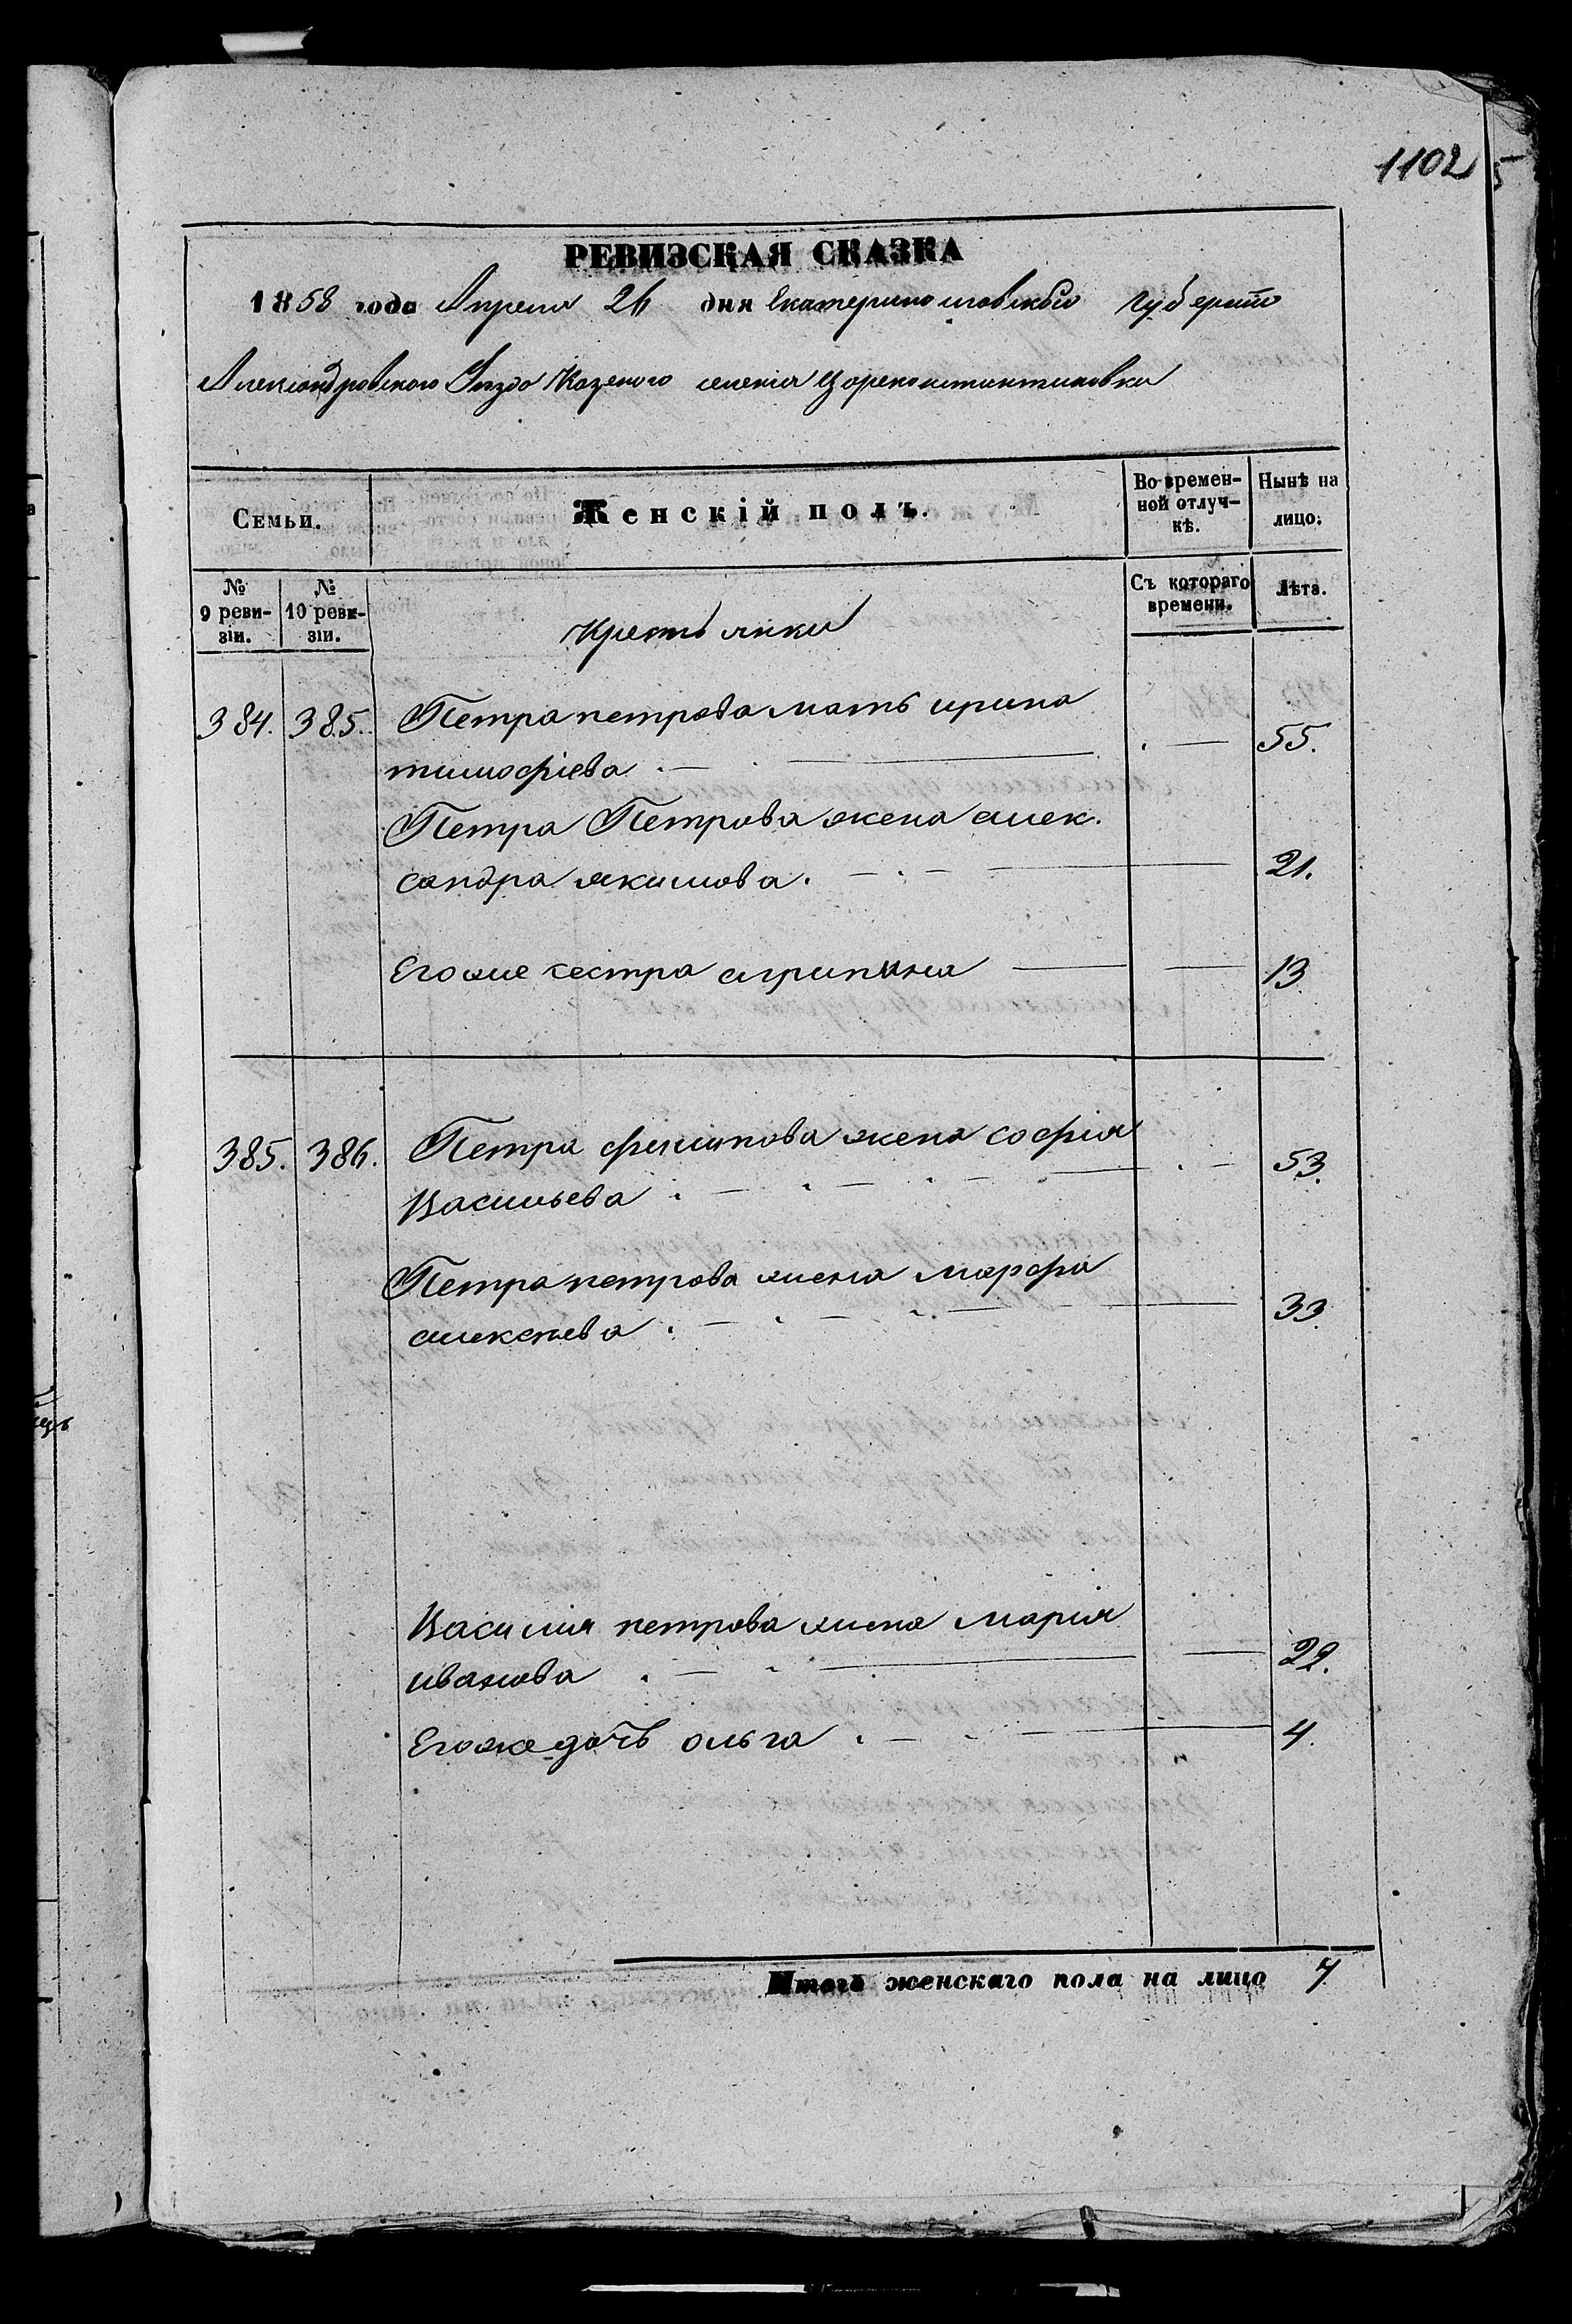 1102
РЕВИЗСКАЯ СКАЗКА
1858 года Апреля 26 дня Екатеринославской Губернии
Александровского Уезда Казеного селения Цареконстантиновки
Семьи.
Женскій полъ.
Во времен-
ной отлуч-
кѣ.
Нынѣ на
лицо.
№
9 реви-
зіи.
№
10 реви-
зіи.
Съ котораго
времени.
Лѣта.
Крестьянки
384. 385. Петра петрова мать ирина
тимофіева 55.
Петра Петрова жена алек.
сандра якимова. 21.
Егоже сестра агрипина 13
385. 386. Петра филипова жена софия
Васильева 53.
Петра петрова жена марфа
алексіева 33.
Василия петрова жена мария
иванова 22.
Егоже дочь ольга 4.
Итогъ женскаго пола на лицо 7